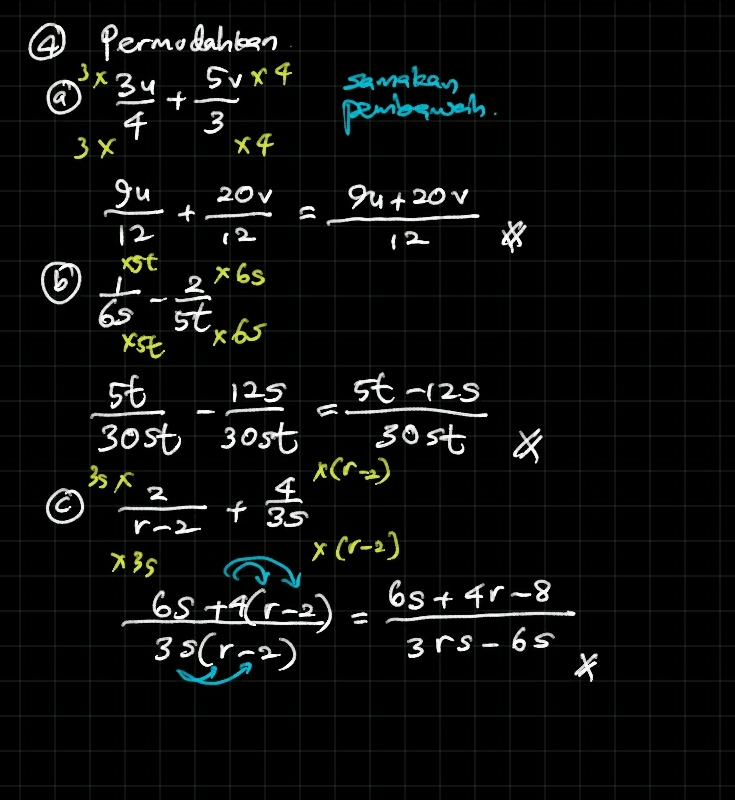 ④ Permudahkan.
ⓐ 3× 3u/4 3× + 5v/3 ×4 ×4
samakan
pembawah.
9u/12 + 20v/12 = (9u+20v)/12 ※
ⓑ 1/6s ×5t ×5t − 2/5t ×6s ×6s
5t/30st − 12s/30st = (5t−12s)/30st ※
ⓒ 3s× 2/(r−2) ×3s + 4/3s ×(r−2) ×(r−2)
(6s+4(r−2))/(3s(r−2)) = (6s+4r−8)/(3rs−6s) ※